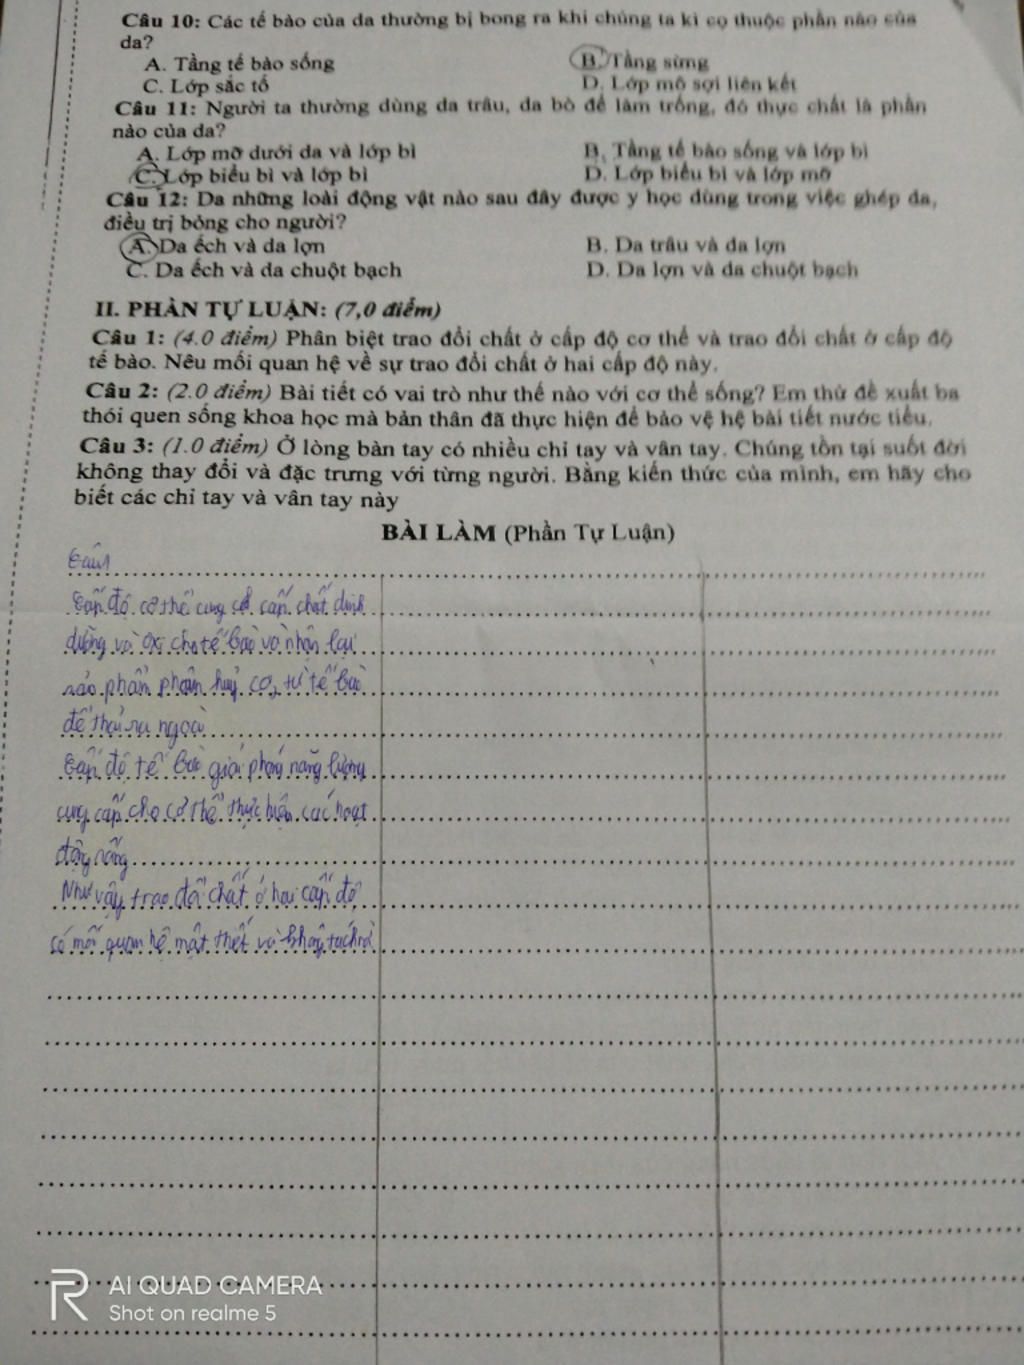 Câu 10: Các tế bào của da thường bị bong ra khi chúng ta kì cọ thuộc phần nào của
da?
A. Tầng tế bào sống B. Tầng sừng
C. Lớp sắc tố D. Lớp mô sợi liên kết
Câu 11: Người ta thường dùng da trâu, da bò để làm trống, đó thực chất là phần
nào của da?
A. Lớp mỡ dưới da và lớp bì B. Tầng tế bào sống và lớp bì
C. Lớp biểu bì và lớp bì D. Lớp biểu bì và lớp mỡ
Câu 12: Da những loài động vật nào sau đây được y học dùng trong việc ghép da,
điều trị bỏng cho người?
A. Da ếch và da lợn B. Da trâu và da lợn
C. Da ếch và da chuột bạch D. Da lợn và da chuột bạch
II. PHẦN TỰ LUẬN: (7,0 điểm)
Câu 1: (4.0 điểm) Phân biệt trao đổi chất ở cấp độ cơ thể và trao đổi chất ở cấp độ
tế bào. Nêu mối quan hệ về sự trao đổi chất ở hai cấp độ này.
Câu 2: (2.0 điểm) Bài tiết có vai trò như thế nào với cơ thể sống? Em thử đề xuất ba
thói quen sống khoa học mà bản thân đã thực hiện để bảo vệ hệ bài tiết nước tiểu.
Câu 3: (1.0 điểm) Ở lòng bàn tay có nhiều chỉ tay và vân tay. Chúng tồn tại suốt đời
không thay đổi và đặc trưng với từng người. Bằng kiến thức của mình, em hãy cho
biết các chỉ tay và vân tay này
BÀI LÀM (Phần Tự Luận)
Câu 1
Cấp độ cơ thể cung cấp chất dinh
dưỡng và oxi cho tế bào và nhận lại
phẩm phân huỷ từ tế bào
để thải ra ngoài
Cấp độ tế bào giải phóng năng lượng
cung cấp cho cơ thể thực hiện các hoạt
động
Như vậy trao đổi chất ở hai cấp độ
có mối quan hệ mật thiết và
AI QUAD CAMERA
Shot on realme 5